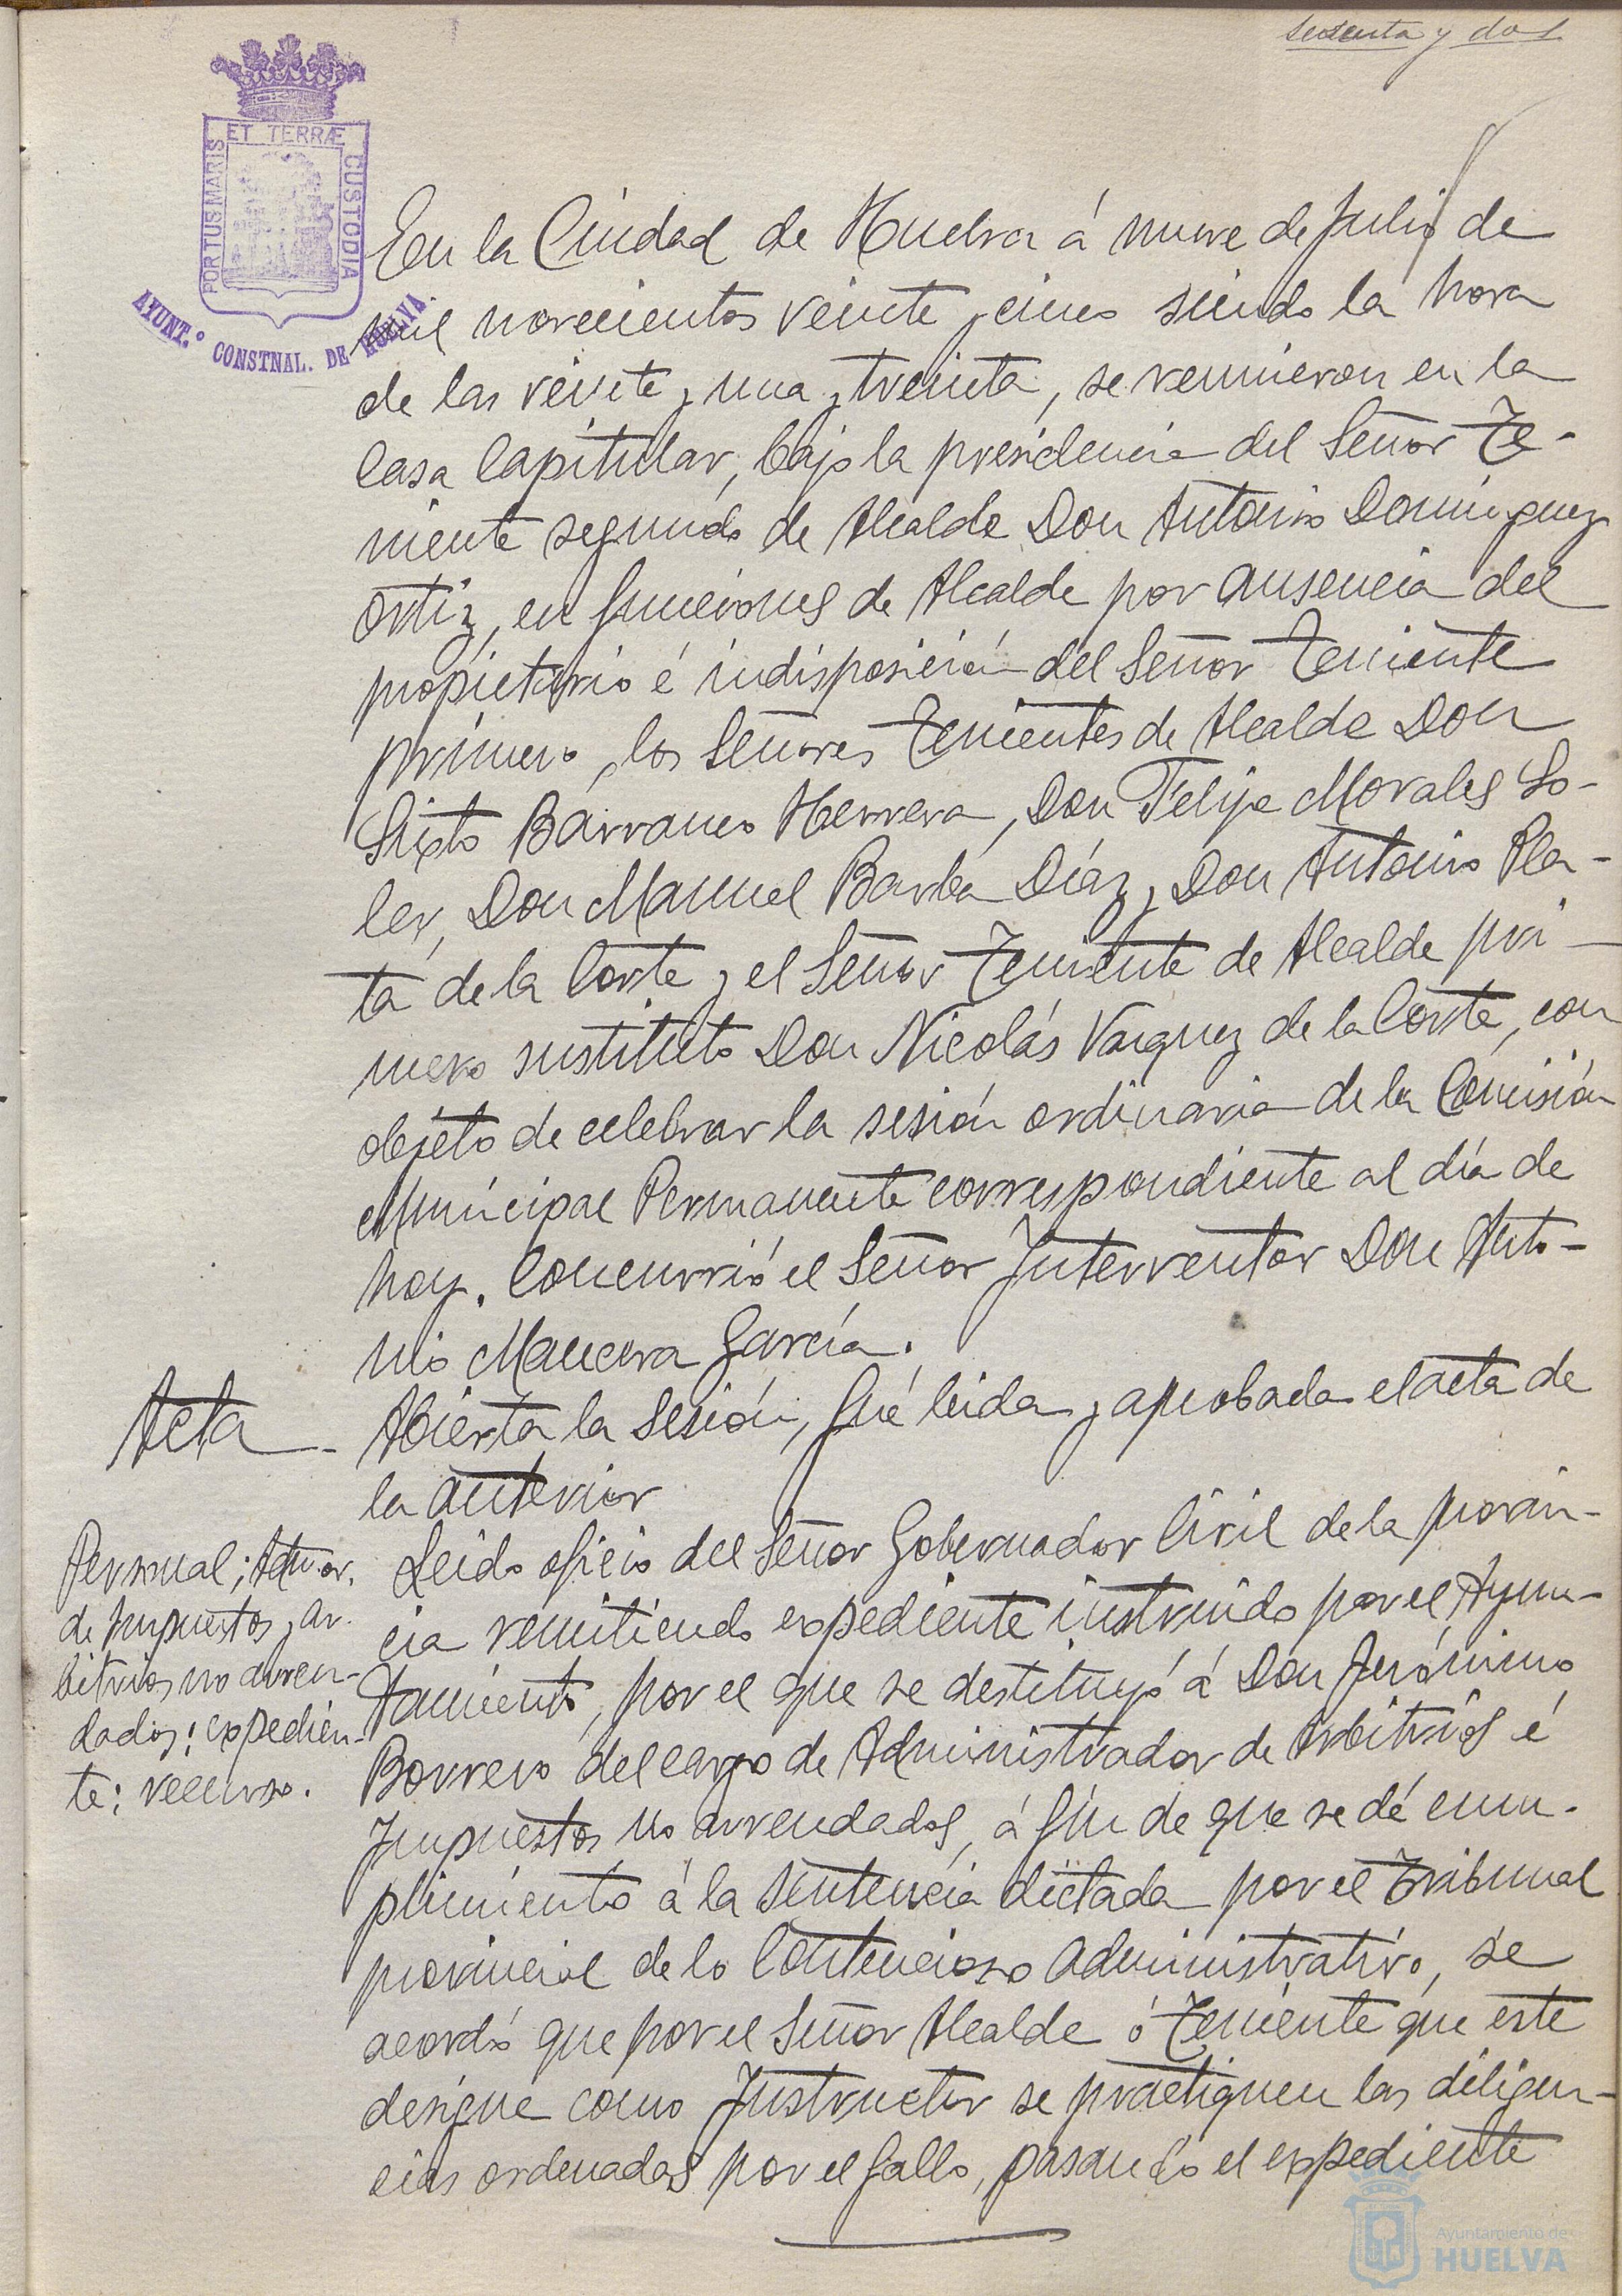 sesenta y dos
PORTUS MARIS ET TERRÆ CUSTODIA
AYUNT.º CONSTNAL. DE HUELVA.
En la Ciudad de Huelva á nueve de Julio de
mil novecientos veinte y cinco siendo la hora
de las veinte y una y treinta, se reunieron en la
Casa Capitular, bajo la presidencia del Señor Te-
niente segundo de Alcalde Don Antonio Dominguez
Ortiz, en funciones de Alcalde por ausencia del
propietario é indisposición del Señor Teniente
primero, los Señores Tenientes de Alcalde Don
Sixto Barranco Herrera, Don Felipe Morales So-
ler, Don Manuel Barba Díaz y Don Antonio Pla-
ta de la Corte y el Señor Teniente de Alcalde pri-
mero sustituto Don Nicolás Vazquez de la Corte, con
objeto de celebrar la sesión ordinaria de la Comisión
Municipal Permanente correspondiente al día de
hoy. Concurrió el Señor Interventor Don Anto-
nio Mancera García.
Acta
Abierta la Sesión, fué leida y aprobada el acta de
la anterior
Personal; Admor.
de Impuestos y ar-
bitrios no arren-
dados: expedien-
te: recurso.
Leido oficio del Señor Gobernador Civil de la provin-
cia remitiendo expediente instruido por el Ayun-
tamiento, por el que se destituyó á Don Jerónimo
Borrero del cargo de Administrador de Arbitrios é
Impuestos no arrendados, á fin de que se dé cum-
plimiento á la sentencia dictada por el Tribunal
provincial de lo Contencioso administrativo, se
acordó que por el Señor Alcalde ó Teniente que este
designe como Instructor se practiquen las diligen-
cias ordenadas por el fallo, pasando el expediente
Ayuntamiento de
HUELVA